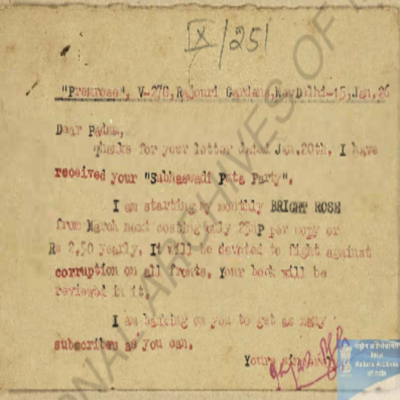 X/251
"Premrose", V-27C, Rajouri Gardens, New Delhi-15, Jan, 26
Dear Padam,
Thanks for your letter dated Jan, 20th. I have
received your "Sabhaswadi Pata Party".
I am starting a monthly BRIGHT ROSE
from March next costing only 25nP per copy or
Rs 2,50 yearly. It will be devoted to fight against
corruption on all fronts. Your book will be
reviewed in it.
I am banking on you to get as many
subscribers as you can.
Yours sincerely
National Archives
of India
ARCHIVES OF